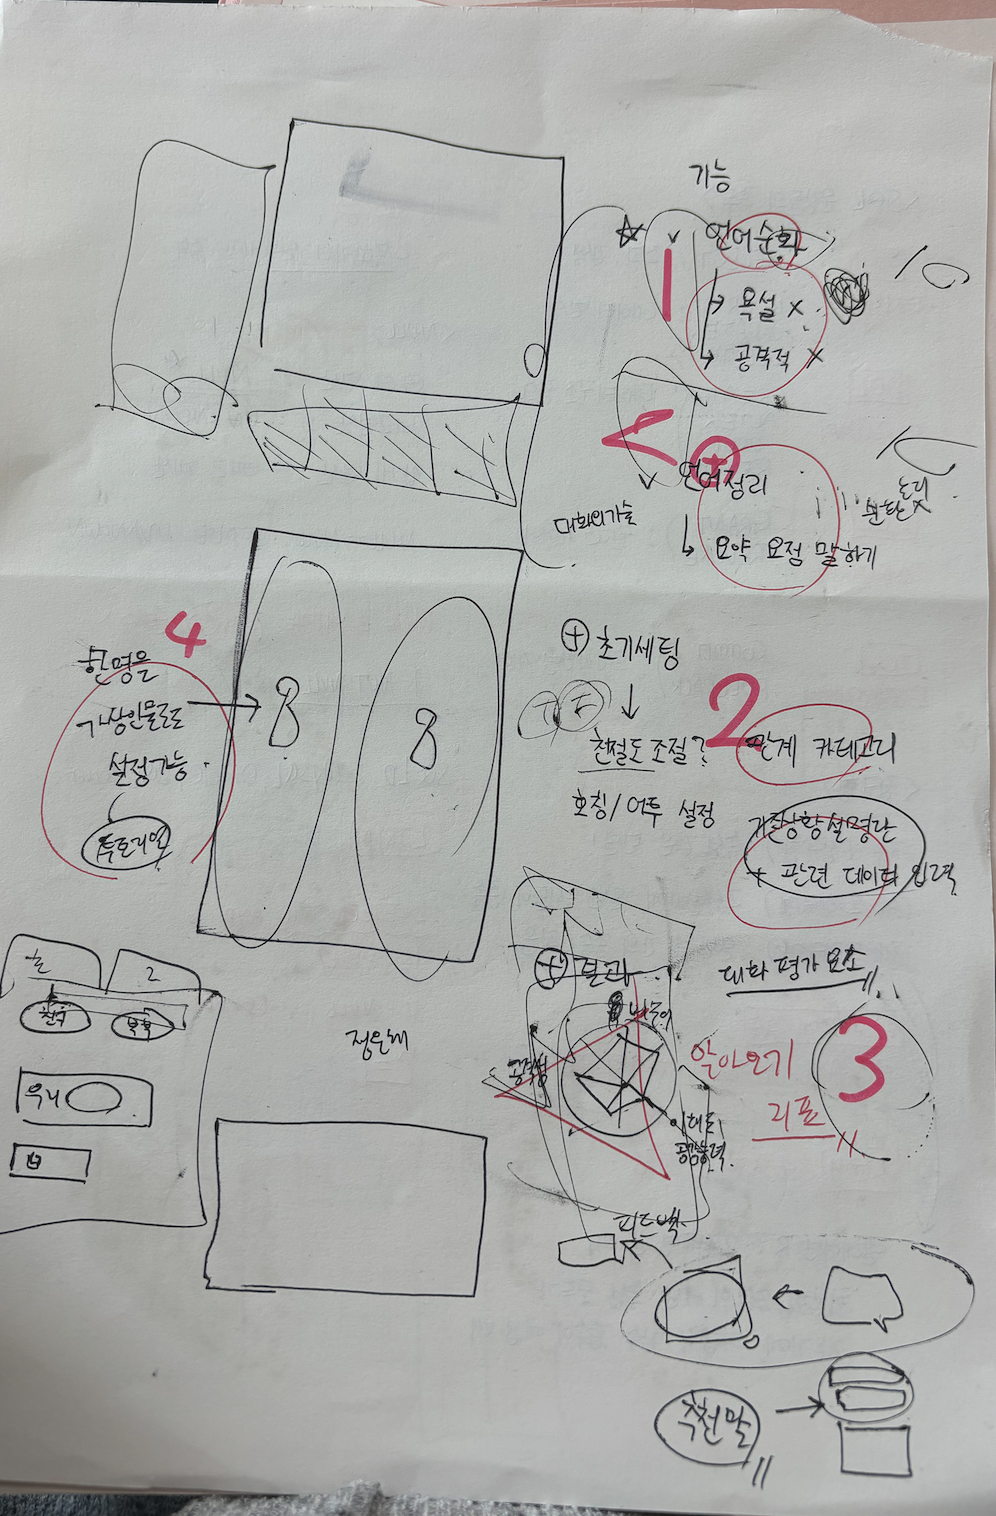 기능
언어순화
1
→ 욕설 X
↳ 공격적 X
<
+
언어정리
대화의 기술
논리
판단 X
↳ 요약 요점 말하기
4
한명은
가상인물로도
설정가능
튜토리얼
8
8
⊕ 초기세팅
↓
T F
친절도 조절?
호칭/어투 설정
2
관계 카테고리
가존상황설명란
+ 관련 데이터 입력
2
친구
정은혜
⊕ 결과
공격성
공감능력
피드백
대화 평가 요소
알아오기
리포
3
추천말